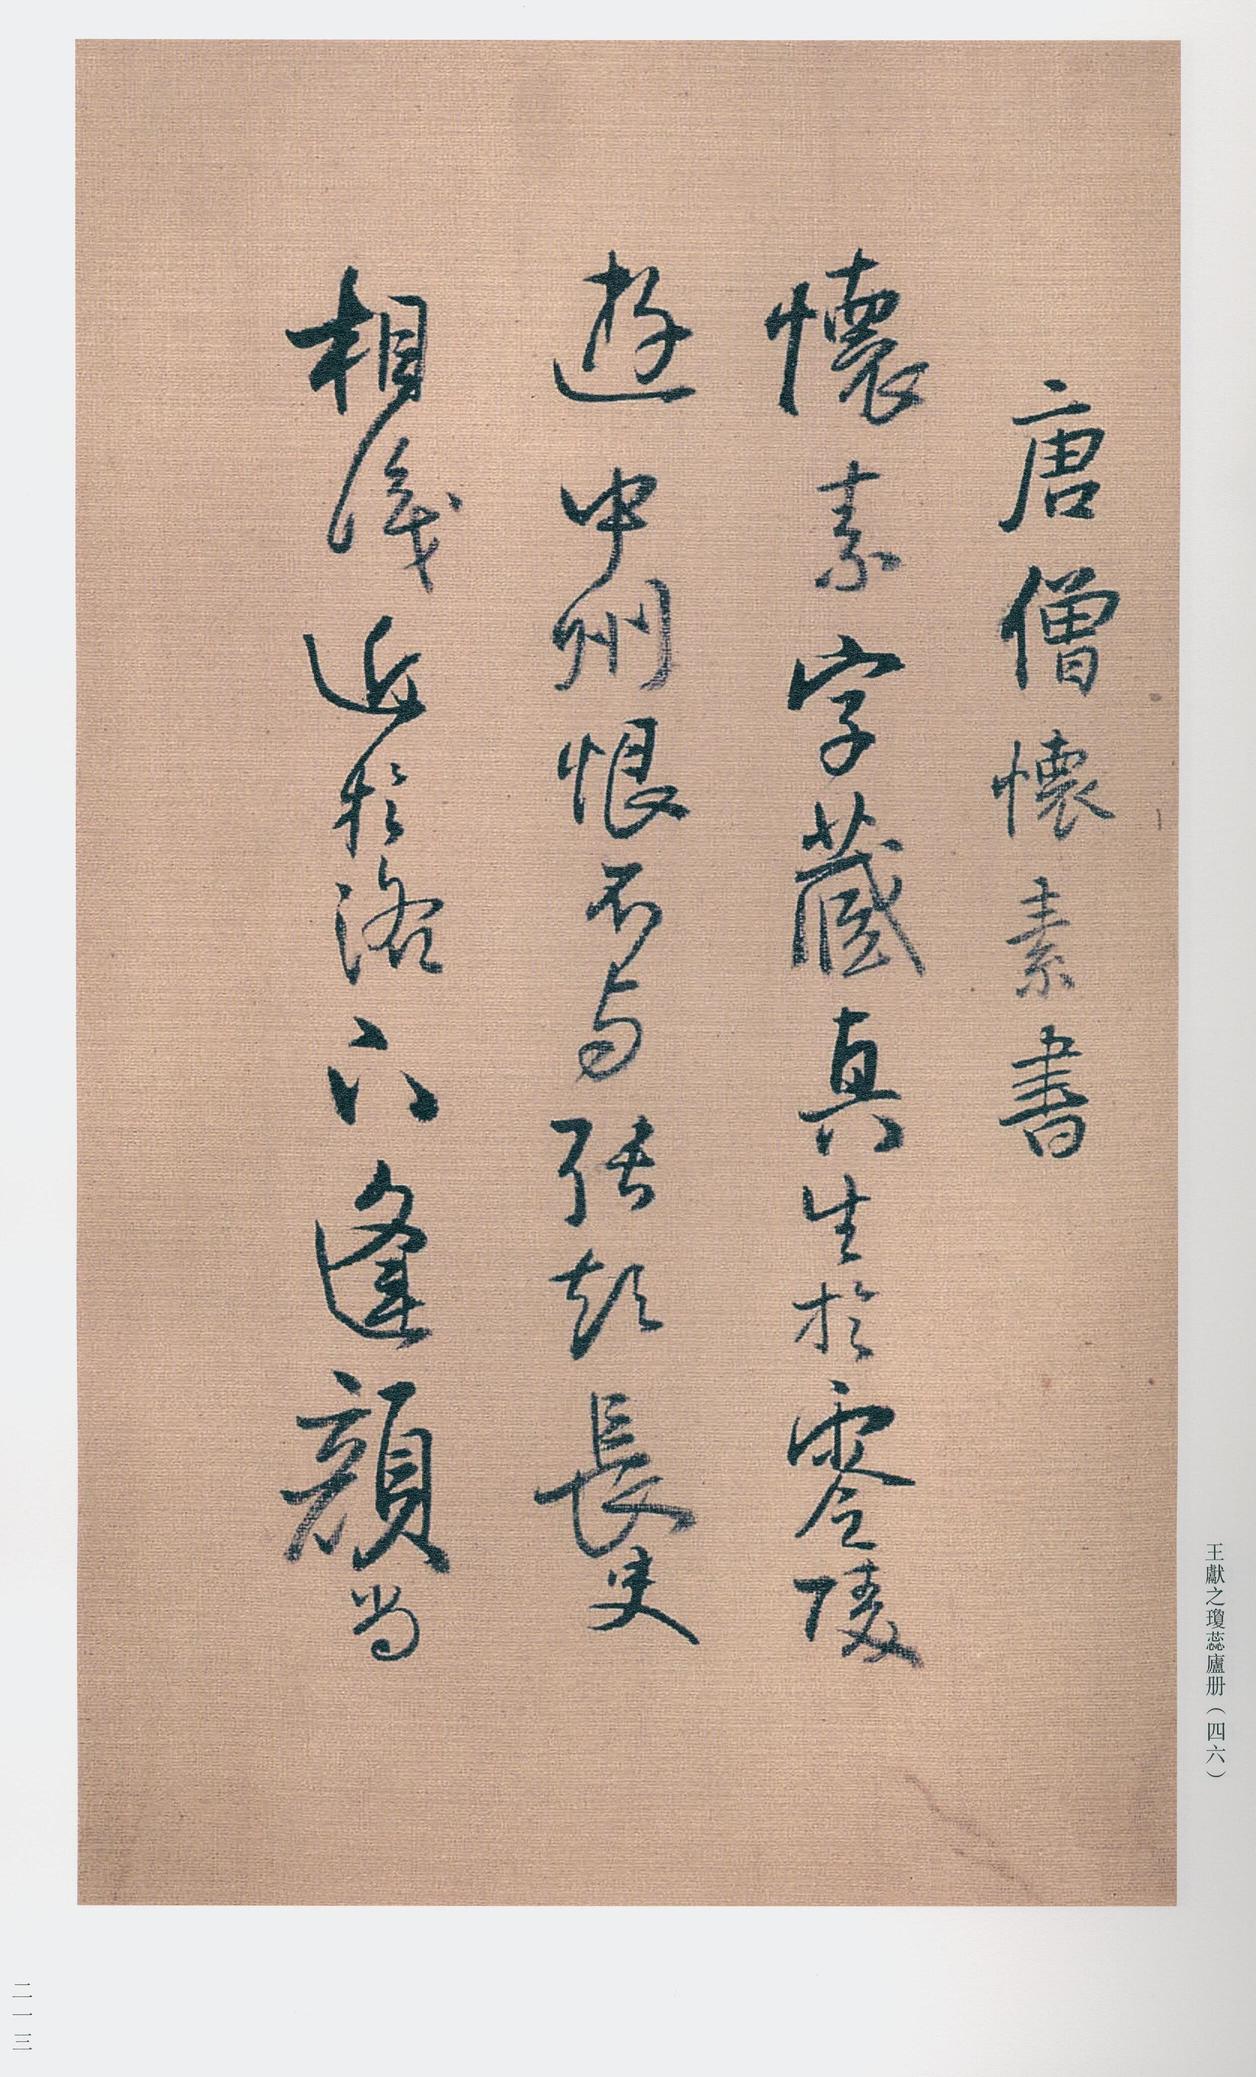 唐僧懷素書
懷素字藏真生於零陵
遊中州恨不与張顛長史
相識近於洛下逢顏尚
王獻之瓊蕊廬册（四六）
二一三